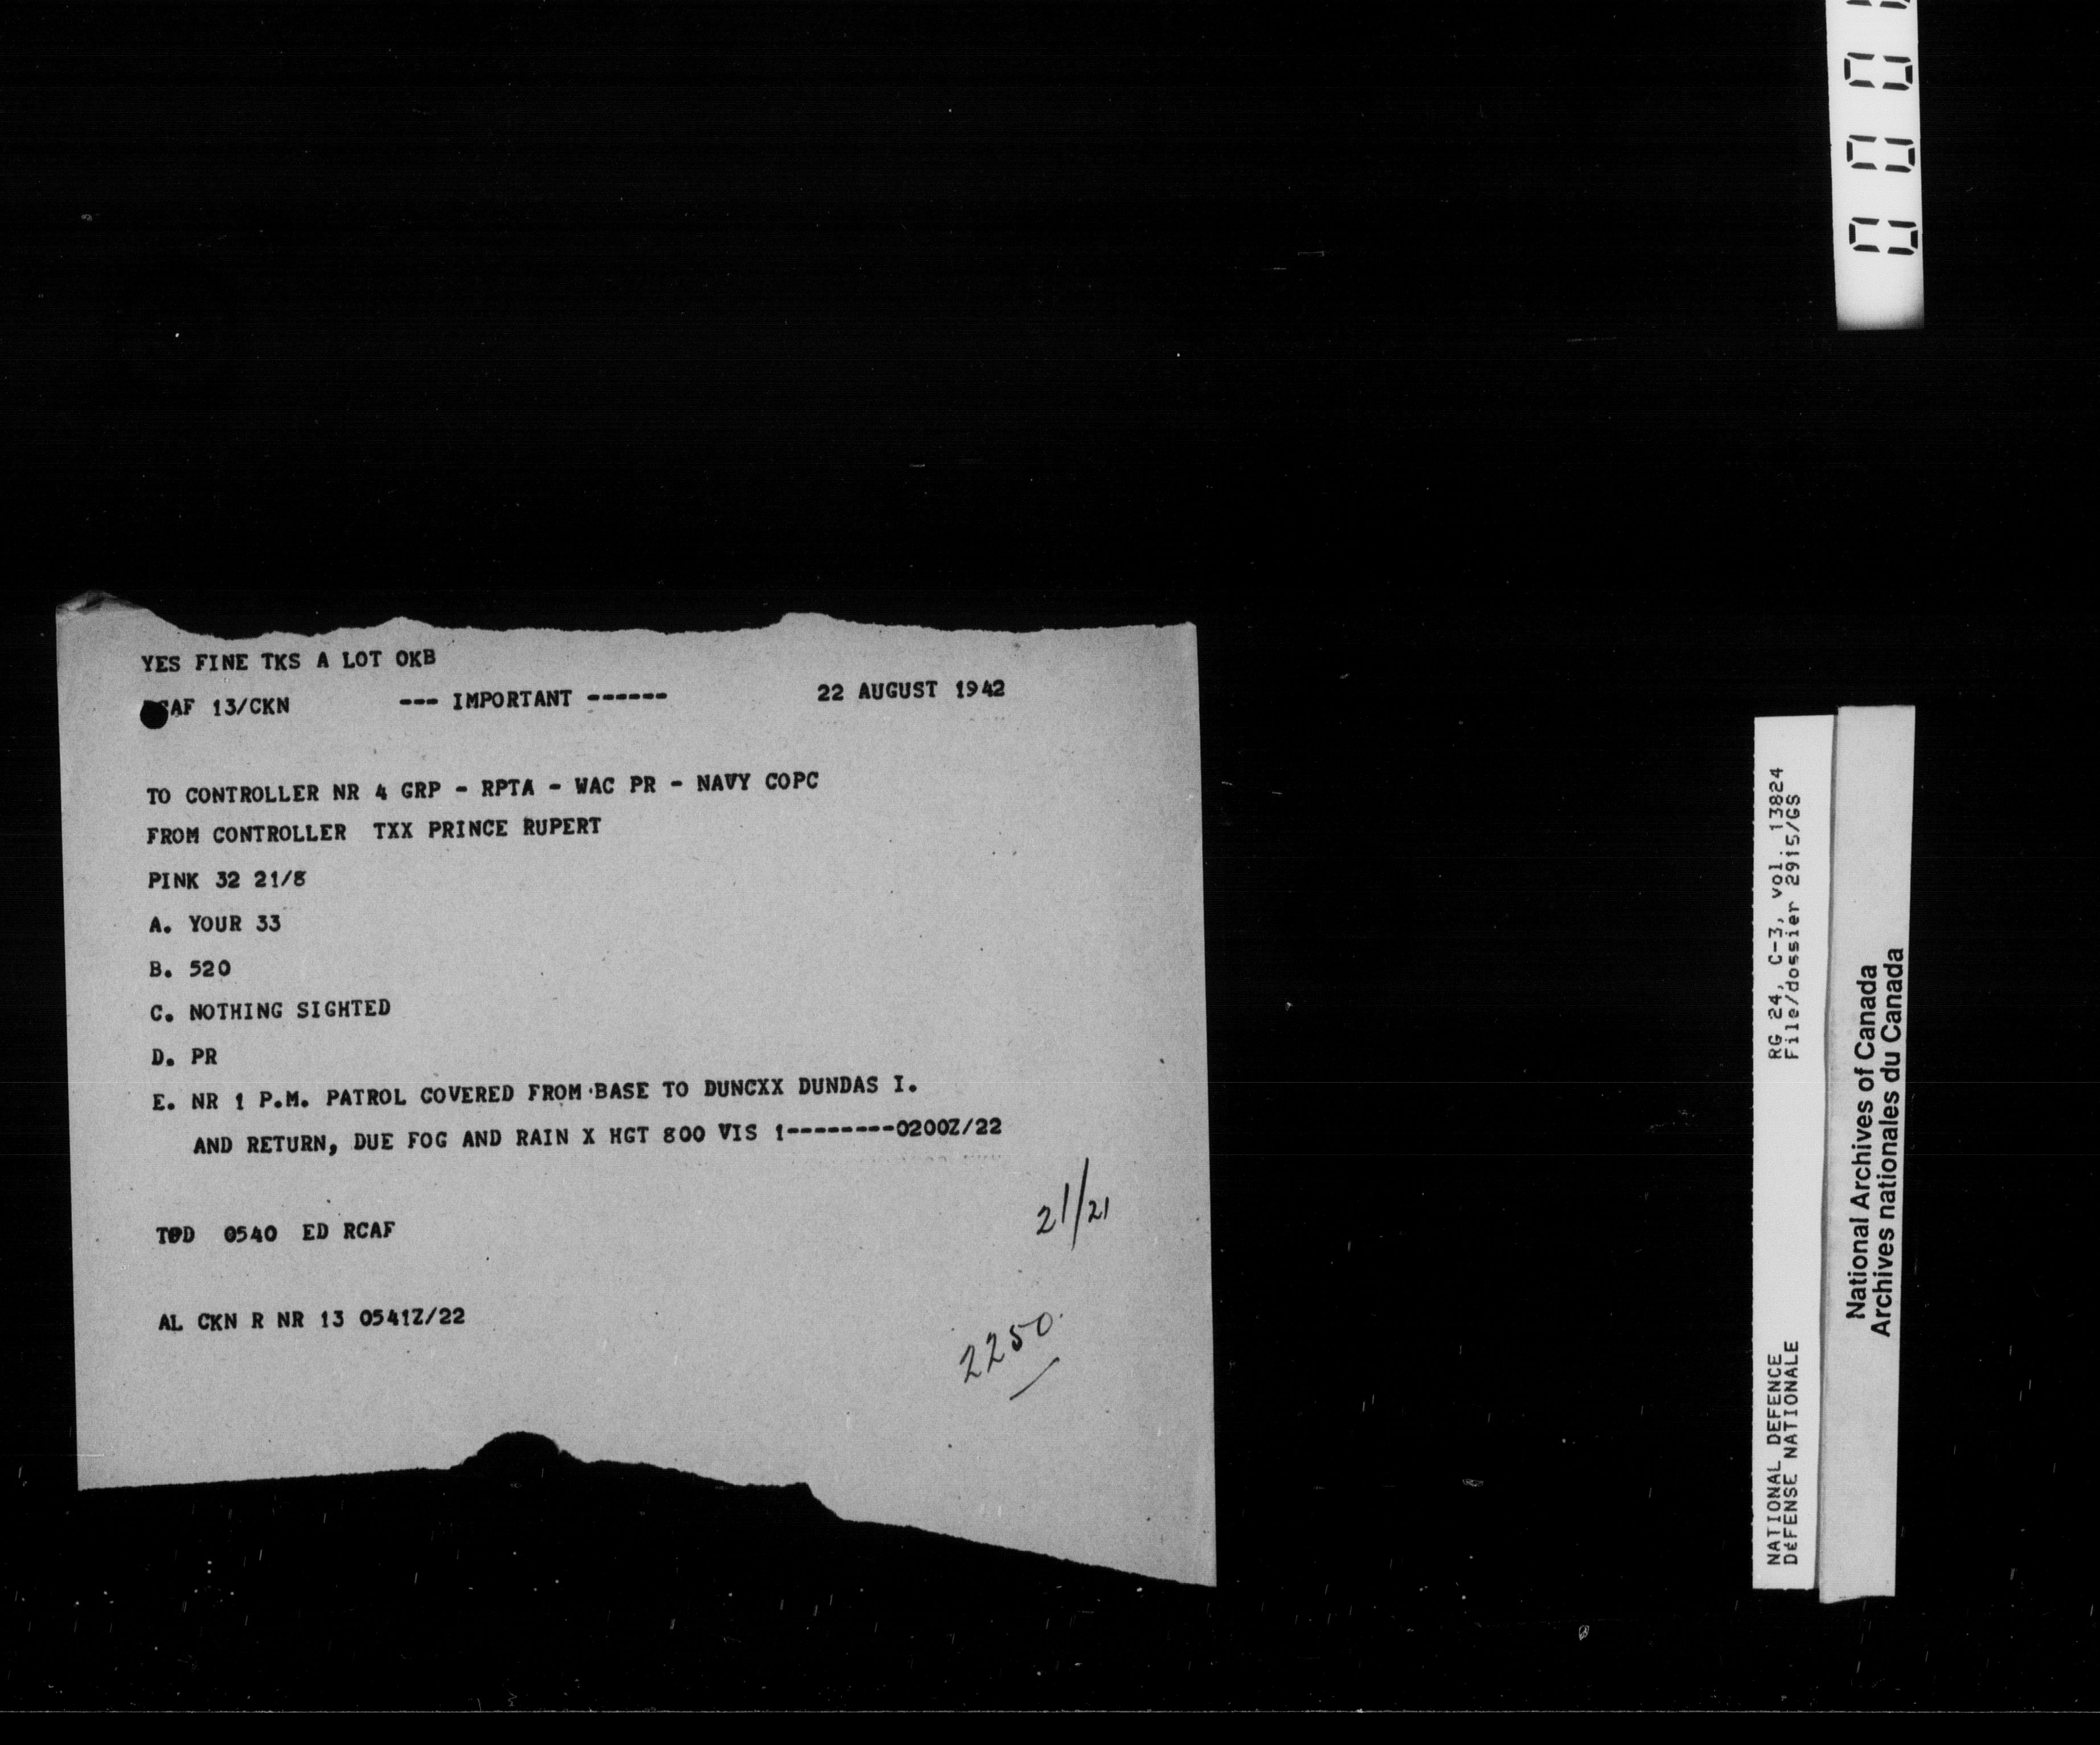 YES FINE TKS A LOT OKB
RCAF 13/CKN --- IMPORTANT ------ 22 AUGUST 1942
TO CONTROLLER NR 4 GRP - RPTA - WAC PR - NAVY COPC
FROM CONTROLLER TXX PRINCE RUPERT
PINK 32 21/8
A. YOUR 33
B. 520
C. NOTHING SIGHTED
D. PR
E. NR 1 P.M. PATROL COVERED FROM BASE TO DUNCXX DUNDAS I.
AND RETURN, DUE FOG AND RAIN X HGT 800 VIS 1--------0200Z/22
21/21
TOD 0540 ED RCAF
AL CKN R NR 13 0541Z/22
2250
RG 24, C-3, vol. 13824
File/dossier 2915/GS
NATIONAL DEFENCE
DÉFENSE NATIONALE
National Archives of Canada
Archives nationales du Canada